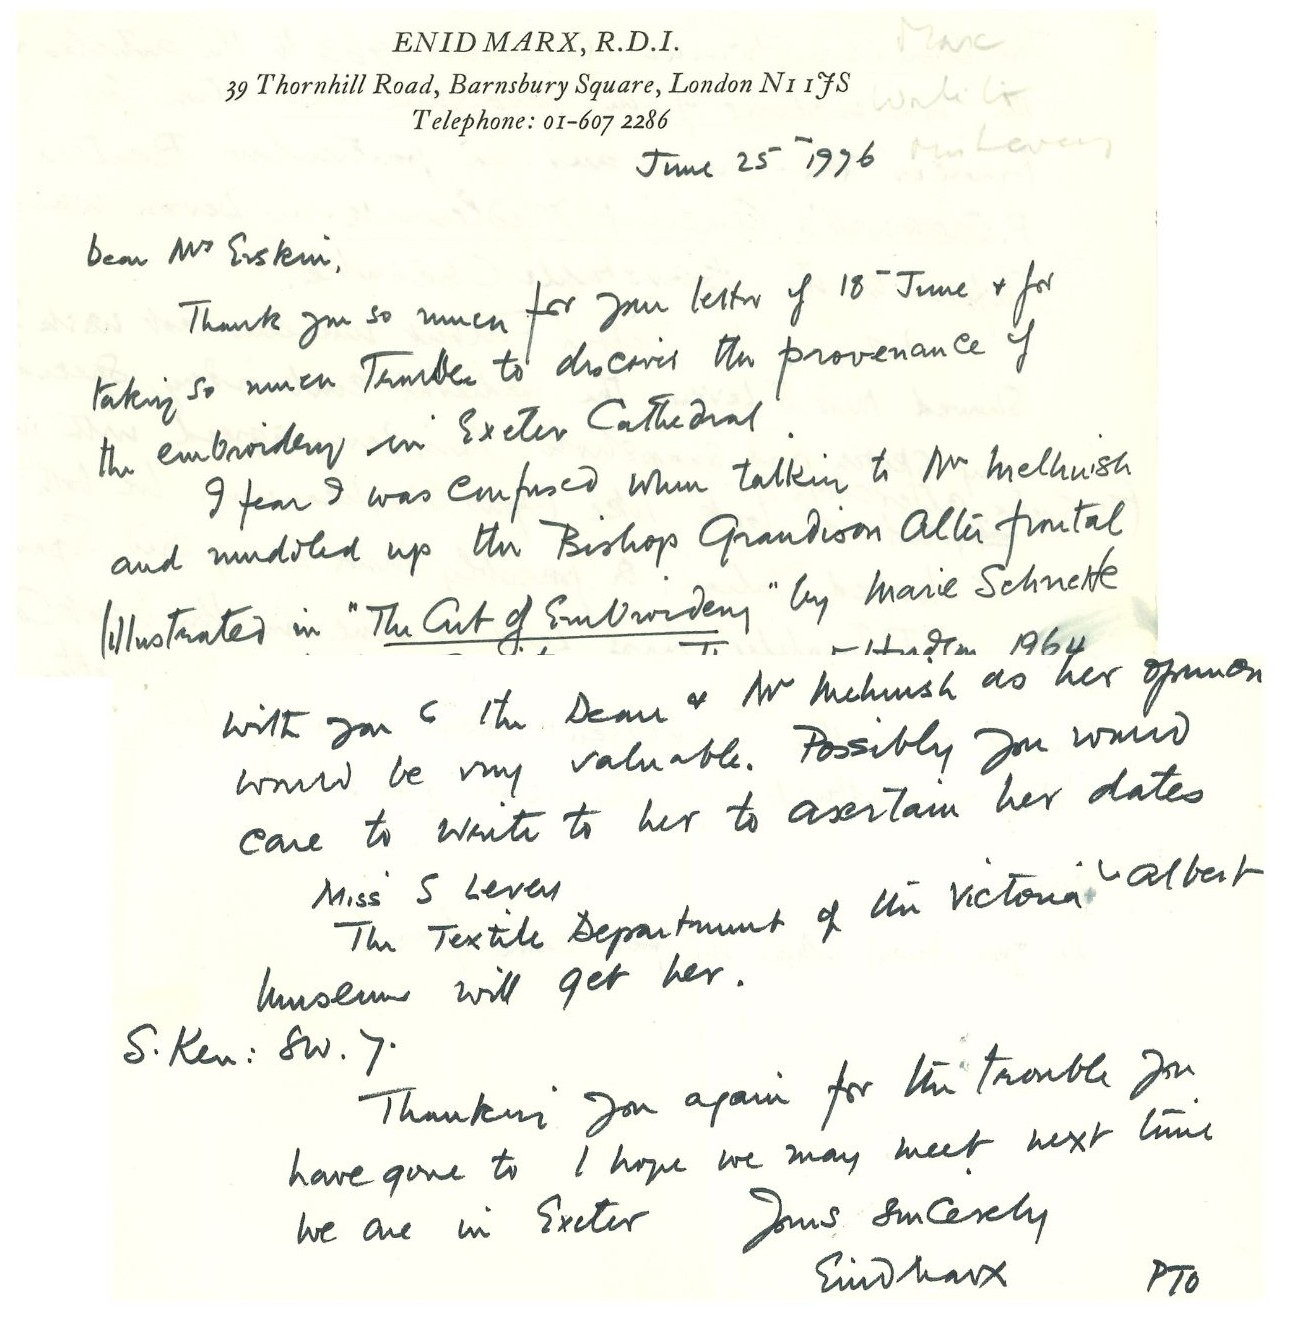 ENID MARX, R.D.I.
39 Thornhill Road, Barnsbury Square, London N1 1JS
Telephone: 01-607 2286
Marx
June 25 - 1976
Dear Mrs Erskin,
Thank you so much for your letter of 18 - June & for
taking so much Trouble to discover the provenance of
the embroidery in Exeter Cathedral.
I fear I was confused when talking to Mr Melhuish
and muddled up the Bishop Grandison Alter frontal
illustrated in "The Art of Embroidery" by Marie Schuette
1964
with you & the Dean & Mr Melhuish as her opinion
would be very valuable. Possibly you would
care to write to her to ascertain her dates
Miss S Levey
The Textile Department of the Victoria & Albert
Museum will get her.
S. Ken: SW. 7.
Thanking you again for the trouble you
have gone to I hope we may meet next time
we are in Exeter Yours sincerely
Enid Marx PTO